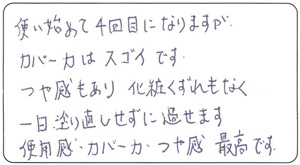 使い始めて4回目になりますが、
カバー力はスゴイです。
つや感もあり 化粧くずれもなく
一日塗り直しせずに過せます
使用感・カバー力・つや感 最高です。